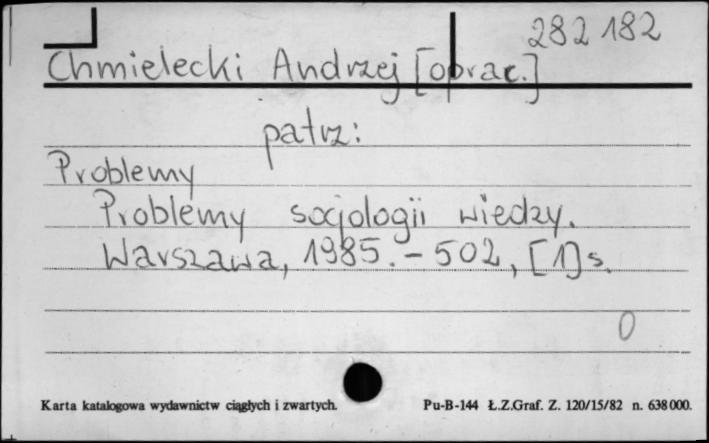 282 182
Chmielecki Andrzej [oprac.]
patrz:
Problemy
Problemy socjologii wiedzy.
Warszawa, 1985. – 502, [1] s.
0
Karta katalogowa wydawnictw ciągłych i zwartych.
Pu-B-144 Ł.Z.Graf. Z. 120/15/82 n. 638 000.